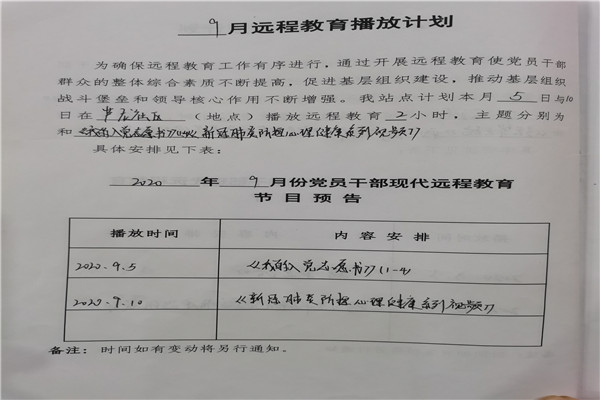 9月远程教育播放计划
为确保远程教育工作有序进行，通过开展远程教育使党员干部
群众的整体综合素质不断提高，促进基层组织建设，推动基层组织
战斗堡垒和领导核心作用不断增强。我站点计划本月 5 日与10
日在 社区 （地点）播放远程教育 2 小时，主题分别为
和《我的入党志愿书》(1-4)《新冠肺炎阶段心理健康系列视频》
具体安排见下表：
2020 年 9 月份党员干部现代远程教育
节目预告
播放时间 内容安排
2020.9.5 《我的入党志愿书》(1-4)
2020.9.10 《新冠肺炎阶段心理健康系列视频》
备注：时间如有变动将另行通知。